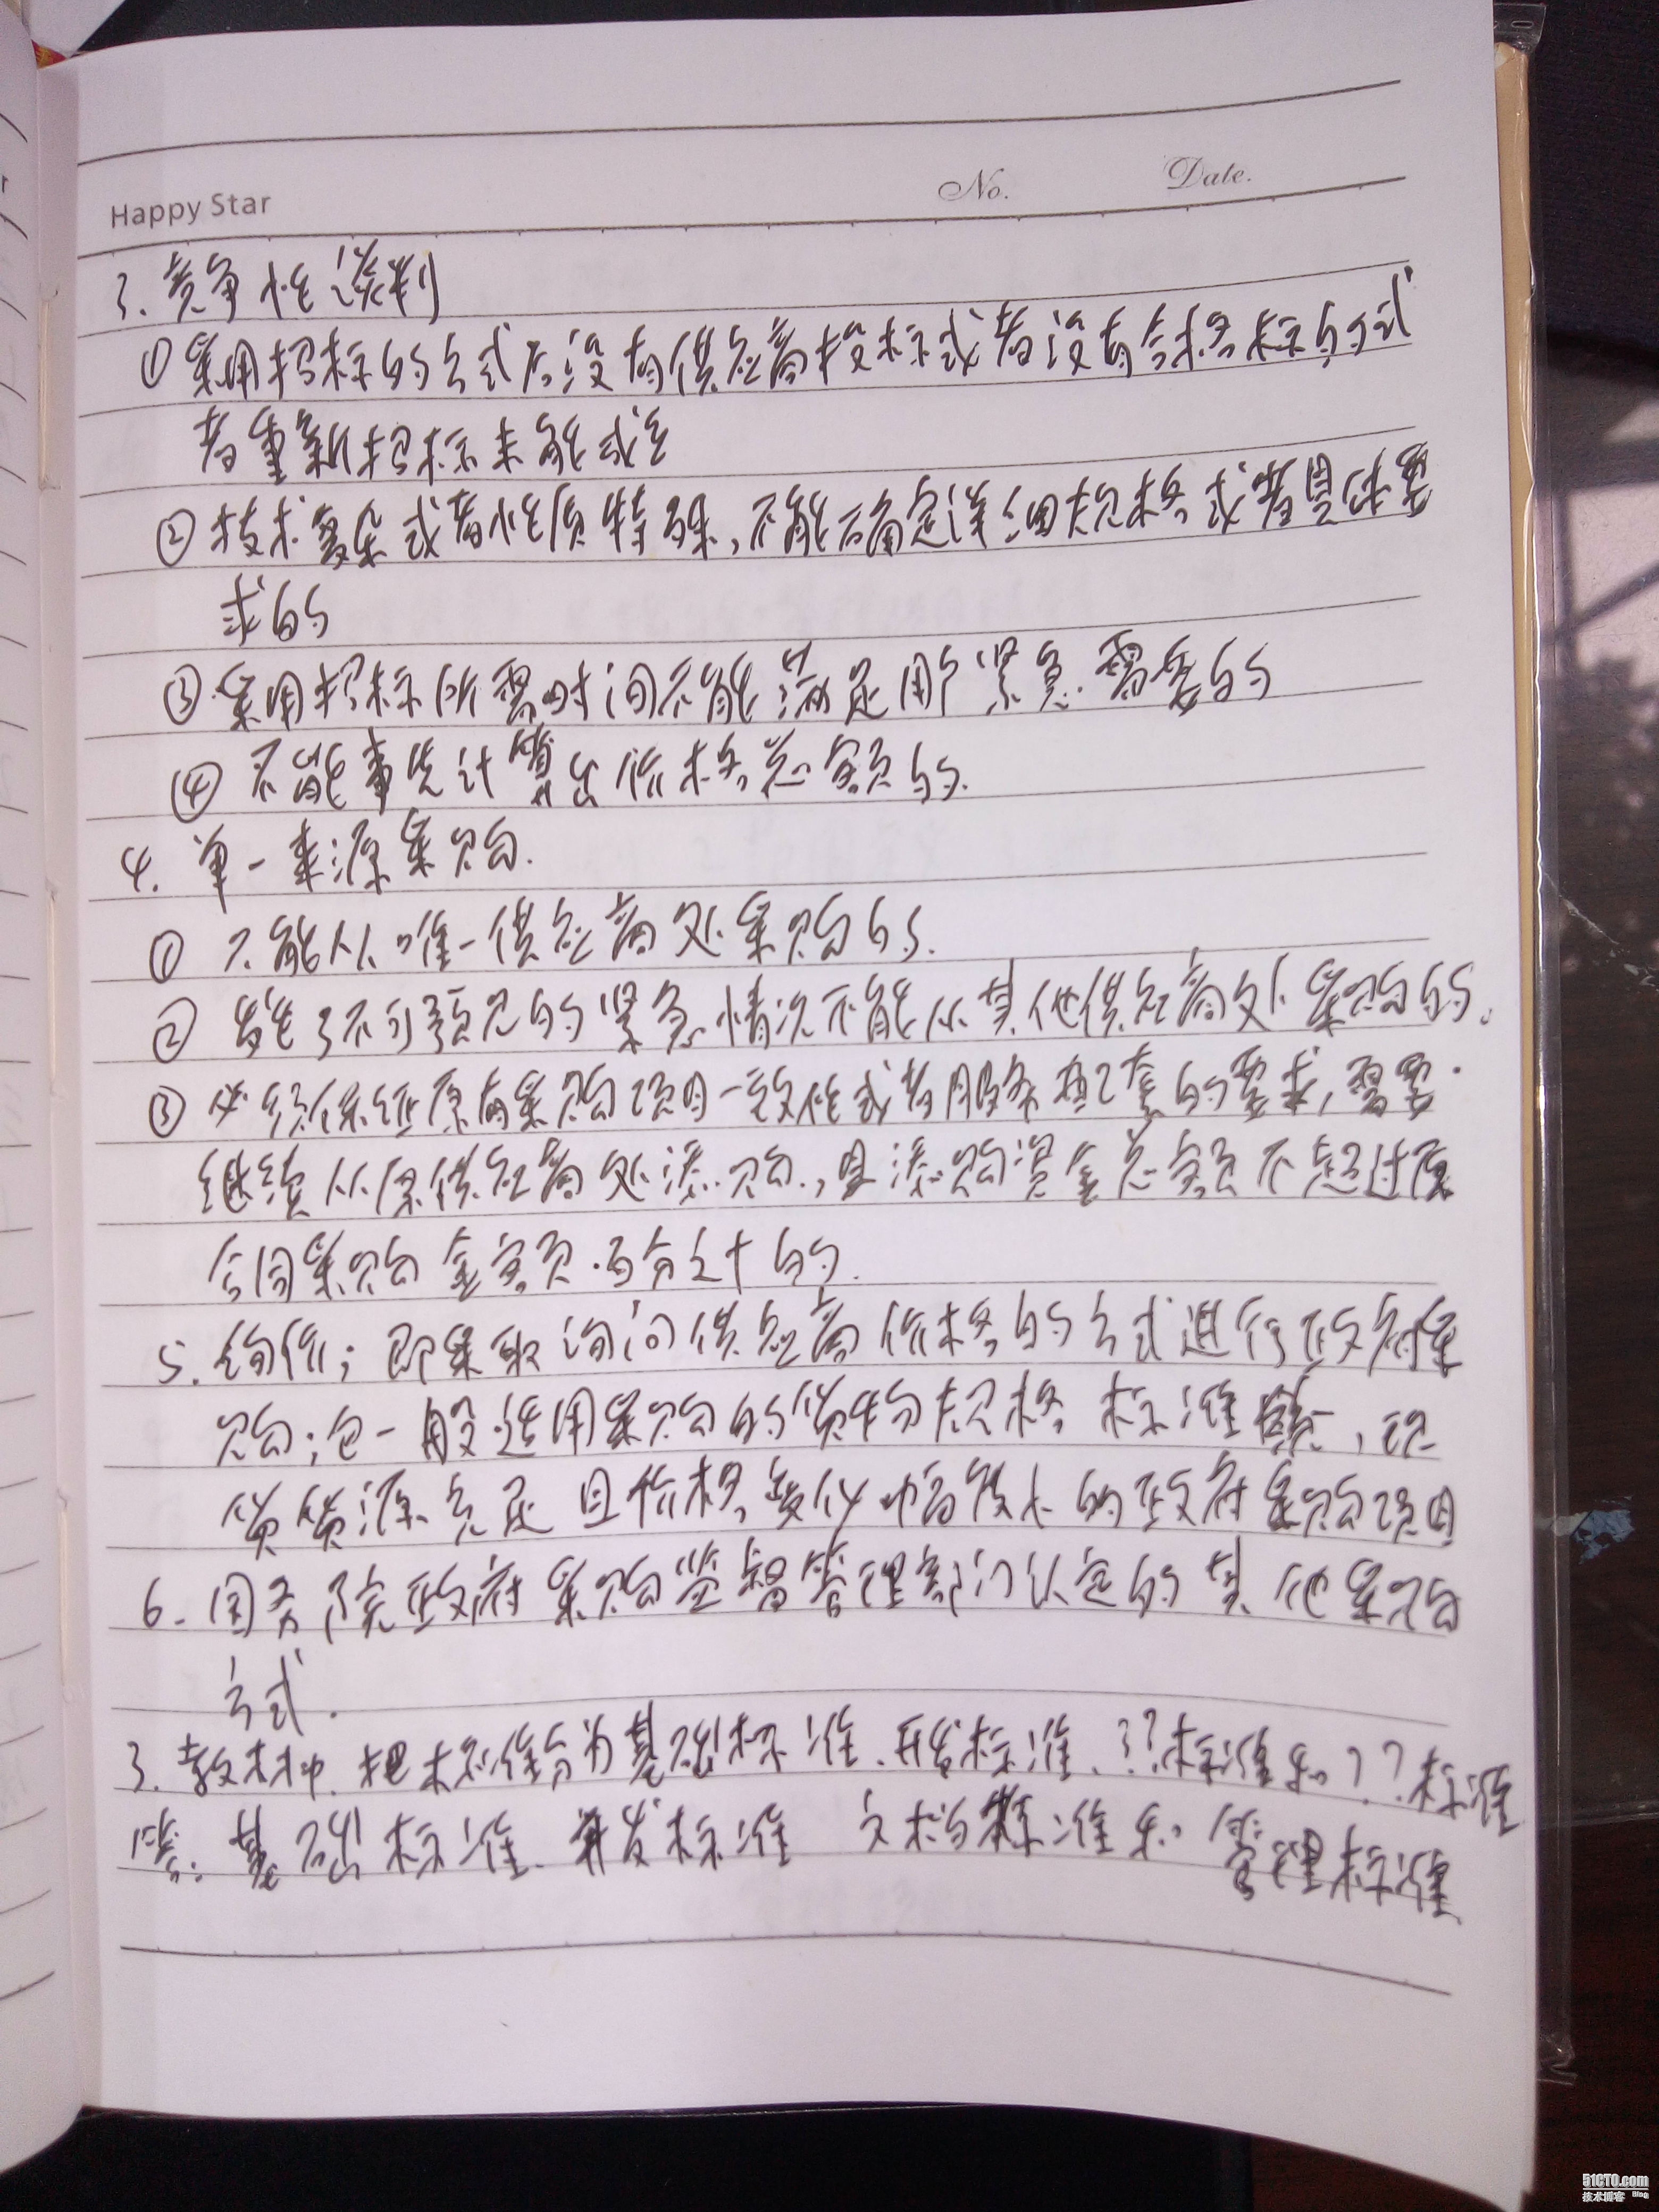 Happy Star No. Date.
3. 竞争性谈判
① 采用招标的方式后没有供应商投标或者没有合格标的或
者重新招标未能成立
② 技术复杂或者性质特殊,不能确定详细规格或者具体要
求的
③ 采用招标所需时间不能满足用户紧急需要的
④ 不能事先计算出价格总额的.
4. 单一来源采购.
① 只能从唯一供应商处采购的.
② 发生了不可预见的紧急情况不能从其他供应商处采购的.
③ 必须保证原有采购项目一致性或者服务配套的要求,需要
继续从原供应商处添购,且添购资金总额不超过原
合同采购金额百分之十的.
5. 询价;即采取询问供应商价格的方式进行政府采
购;它一般适用采购的货物规格标准统一,现
货货源充足且价格变化幅度小的政府采购项目
6. 国务院政府采购监督管理部门认定的其他采购
方式.
3. 教材中.把标准分为基础标准、开发标准、??标准和??标准
答:基础标准、开发标准 文档标准和管理标准
51CTO.com
技术博客 Blog